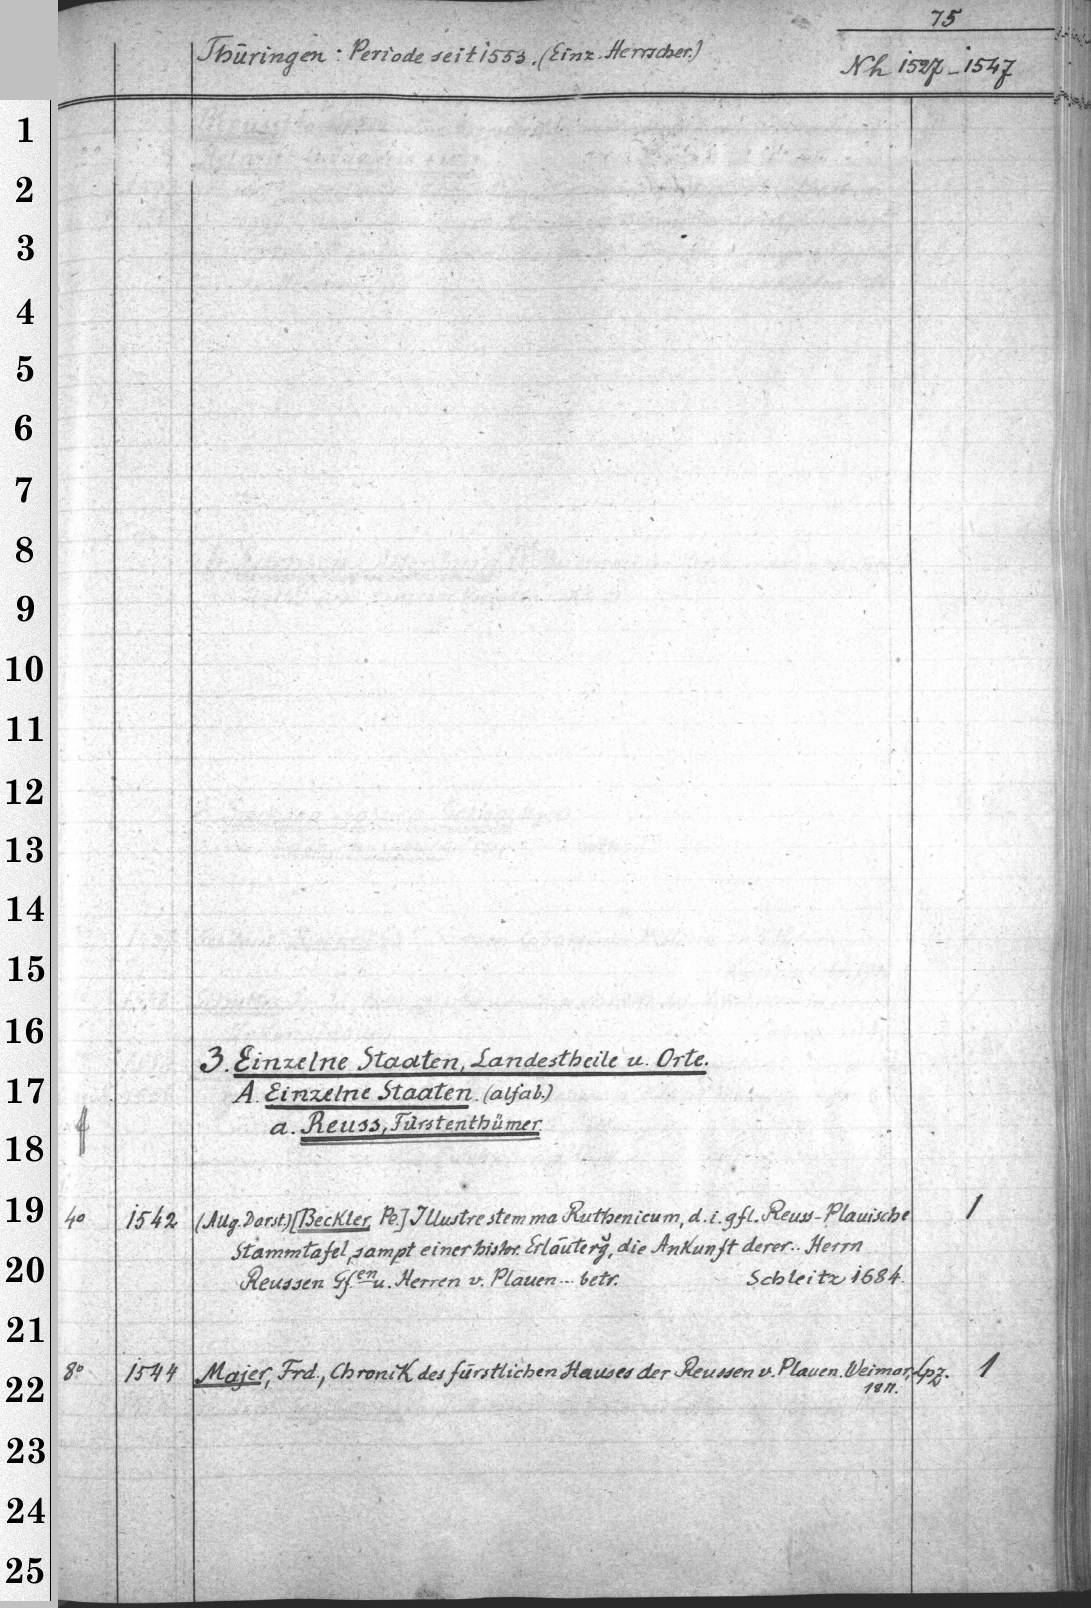 75
Thüringen: Periode seit 1553. (Einz. Herrscher.)
Nh 1527–1547
1
2
3
4
5
6
7
8
9
10
11
12
13
14
15
16
3. Einzelne Staaten, Landestheile u. Orte.
17
A. Einzelne Staaten. (alfab.)
a. Reuss, Fürstenthümer
18
19
4° 1542 (Aug. Darst.) [Beckler, Pe.] Illustre stemma Ruthenicum, d. i. gfl. Reuss-Plauische 1
Stammtafel, sampt einer histor. Erläuterg, die Ankunft derer... Herrn
20
Reussen Gf.en u. Herren v. Plauen... betr. Schleitz 1684.
21
8° 1544 Majer, Frd., Chronik des fürstlichen Hauses der Reussen v. Plauen. Weimar, Lpz. 1
1811.
22
23
24
25